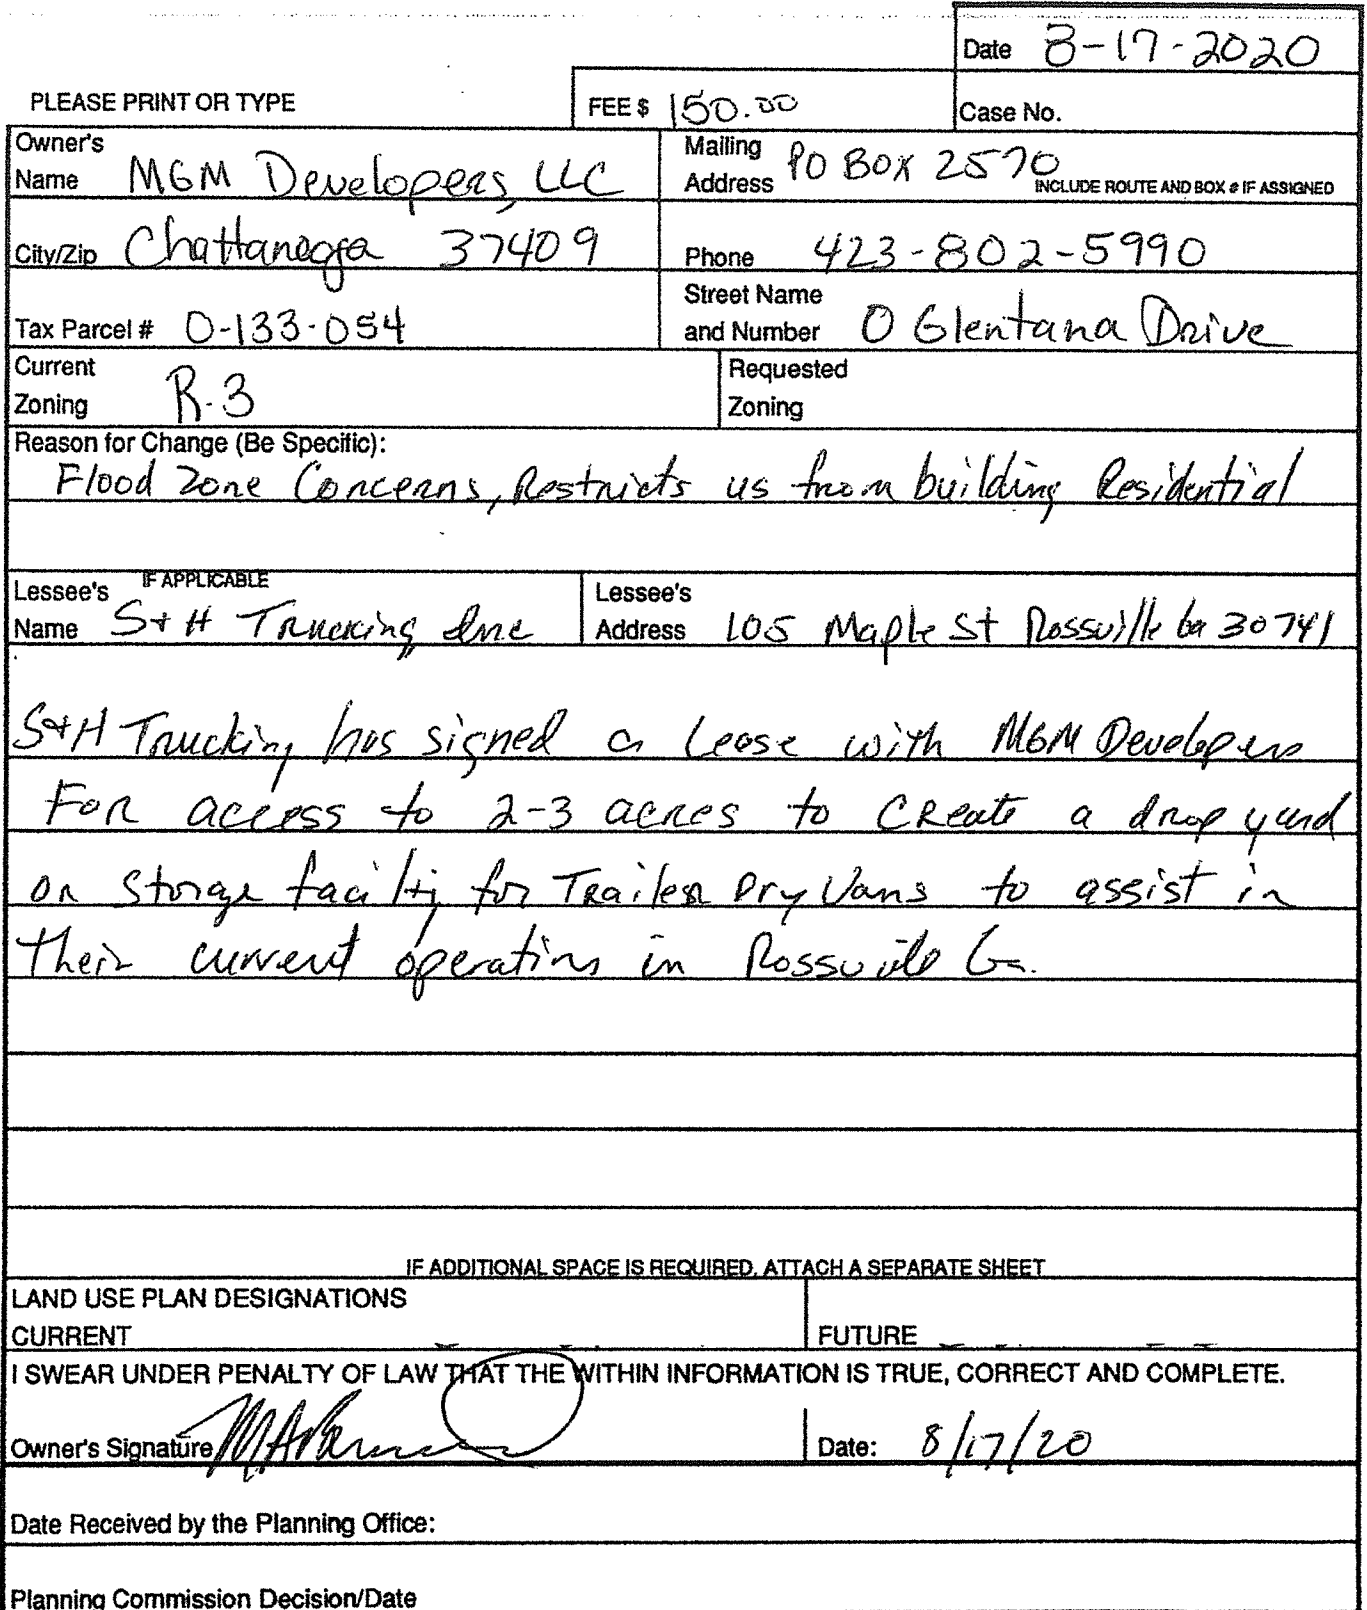 Date 8-17-2020
PLEASE PRINT OR TYPE
FEE $ 150.00
Case No.
Owner's
Name MGM Developers, LLC
Mailing
Address PO BOX 2570
INCLUDE ROUTE AND BOX # IF ASSIGNED
City/Zip Chattanooga 37409
Phone 423-802-5990
Tax Parcel # 0-133-054
Street Name
and Number 0 Glentana Drive
Current
Zoning R-3
Requested
Zoning
Reason for Change (Be Specific):
Flood Zone Concerns, Restricts us from building Residential
Lessee's IF APPLICABLE
Name S+H Trucking Inc
Lessee's
Address 105 Maple St Rossville Ga 30741
S+H Trucking has signed a Lease with MGM Developers
For access to 2-3 acres to Create a drop yard
or Storage facility for Trailer Dry Vans to assist in
their current operations in Rossville Ga.
IF ADDITIONAL SPACE IS REQUIRED, ATTACH A SEPARATE SHEET
LAND USE PLAN DESIGNATIONS
CURRENT
FUTURE
I SWEAR UNDER PENALTY OF LAW THAT THE WITHIN INFORMATION IS TRUE, CORRECT AND COMPLETE.
Owner's Signature
Date: 8/17/20
Date Received by the Planning Office:
Planning Commission Decision/Date